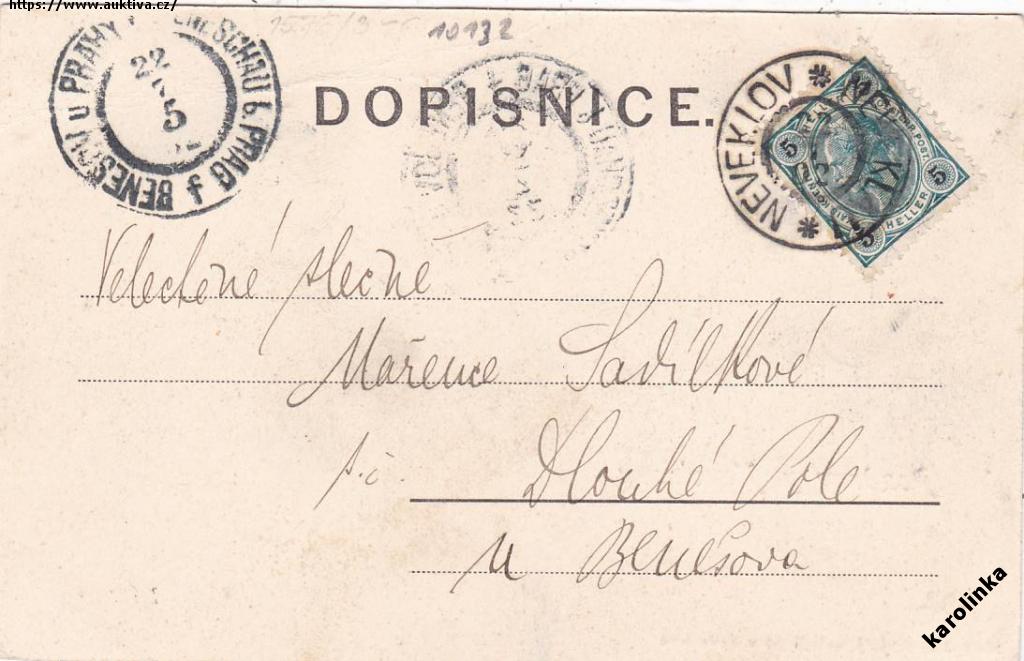 https://www.auktiva.cz/
10132
BENEŠOV u PRAHY BENESCHAU b. PRAG
22
5
DOPISNICE.
NEVEKLOV
5 5 5
HELLER
Velectěné slečne
Mařence Sadílkové
p. č. Dlouhé Pole
u Benešova
karolinka